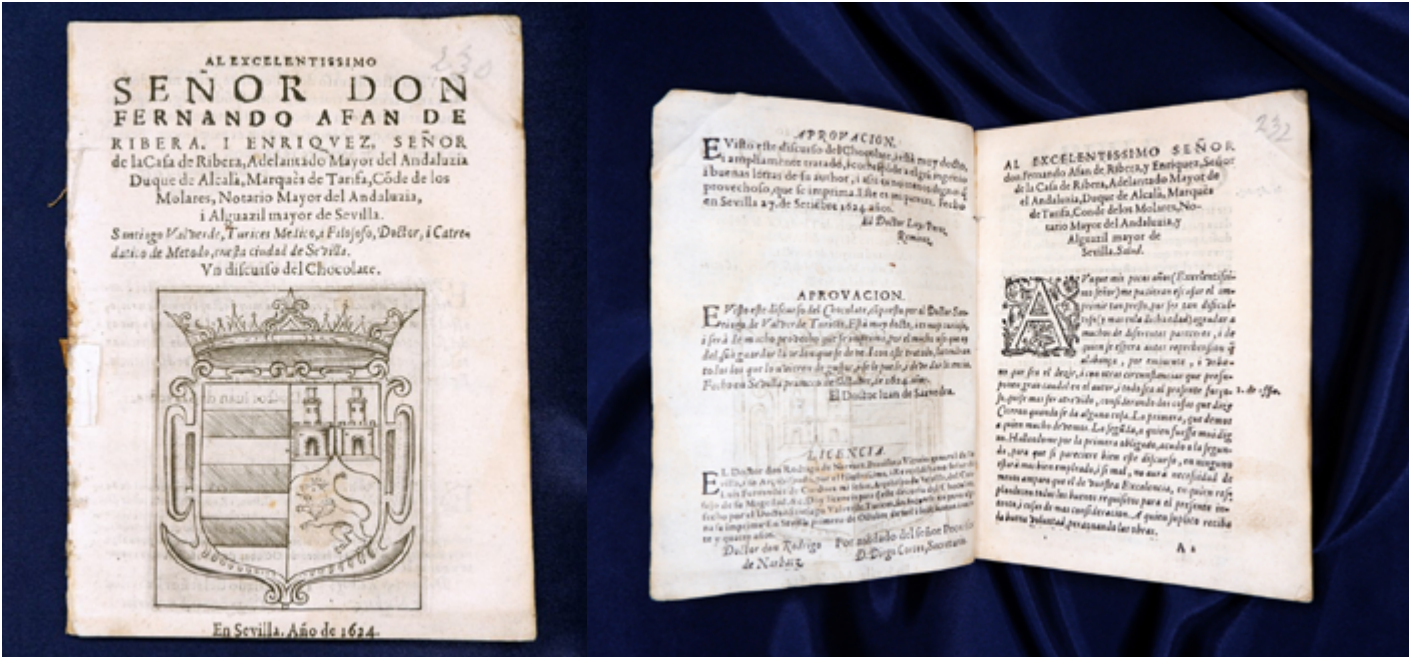 230
AL EXCELENTISSIMO
SEÑOR DON
FERNANDO AFAN DE
RIBERA, I ENRIQVEZ, SEÑOR
de la Casa de Ribera, Adelantado Mayor del Andaluzia
Duque de Alcalà, Marquès de Tarifa, Cõde de los
Molares, Notario Mayor del Andaluzia,
i Alguazil mayor de Sevilla.
Santiago Valverde, Turices Medico, i Filosofo, Doctor, i Catre-
datico de Metodo, en esta ciudad de Sevilla.
Vn discurso del Chocolate.
En Sevilla. Año de 1624.
APROVACION.
E Visto este discurso del Chocolate, i està muy docto,
i ampliamente tratado, i corresponde a el grã ingenio
i buenas letras de su author, i assi es no menos digno q̃
provechoso, que se imprima. Fecho
en Sevilla 27. de Setiẽbre 1624. años.
El Doctor
APROVACION.
E Visto este discurso del Chocolate, cõpuesto por el Doctor San-
tiago de Valverde Turices. Està muy docto, i es muy curioso,
i serà de mucho provecho que se imprima, por el mucho uso que ay
del, i se guardar la orden que se deve. I con este tratado,
todos los que lo
Fecho en Sevilla primero de 1624. años.
El Doctor Iuan de Saavedra.
LICENCIA.
EL Doctor don Rodrigo de
por el Doctor Santiago Valverde Turices,
se imprima. En Sevilla primero de Otubre, de mil i
te y quatro años.
Doctor don Rodrigo
de Narbaez
Por mandado del señor
D. Diego Cortes, Secretario.
232
AL EXCELENTISSIMO SEÑOR
don Fernando Afan de Ribera, y Enriquez, Señor
de la Casa de Ribera, Adelantado Mayor de
el Andaluzia, Duque de Alcalà, Marquès
de Tarifa, Conde de los Molares, No-
tario Mayor del Andaluzia, y
Alguazil mayor de
Sevilla. Salud.
AVnque mis pocos años (Excelentissi-
mo señor) me pudieran escusar el im-
primir tan presto, por ser tan dificul-
toso (y mas en la dicha edad) agradar a
muchos de diferentes pareceres, i de
quien se espera antes reprehension q̃
alabança, por eminente, i
en por ser el dezir, i con otras circunstancias que presu-
ponen gran caudal en el autor, i todo sea al presente
so, quise mas ser atrevido, considerando dos cosas que dize
Ciceron quando se da alguna cosa. La primera, que demos
a quien mucho devemos. La segũda, a quien fuesse muy dig
no. Hallandome por la primera obligado, acudo a la segun-
da, para que si pareciere bien este discurso, en ninguno
estarà mas bien empleado, i si mal, no aurà necessidad de
menos amparo que el de vuestra Excelencia, en quien res-
plandecen todos los buenos requisitos para el presente in-
tento, i cosas de mas consideracion. A quien suplico reciba
la buena voluntad, perdonando las obras.
1. de offic.
A 2